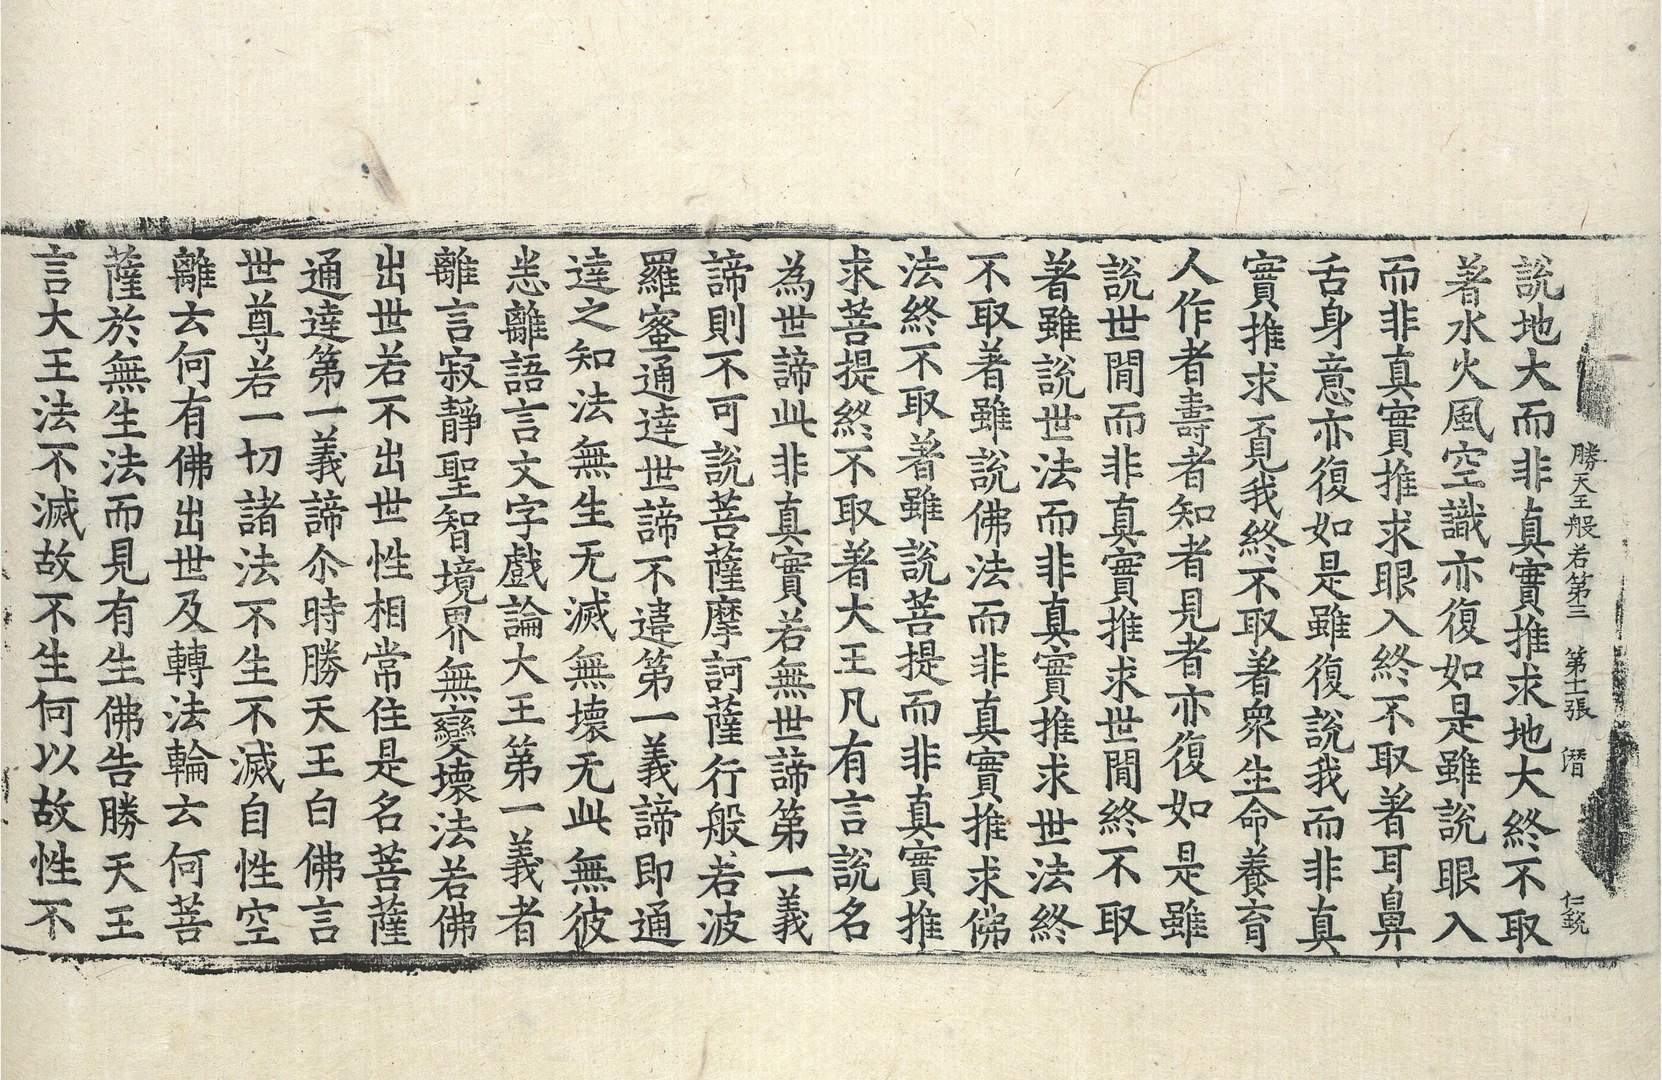 勝天王般若第三　第十一張　㬱　仁銳
說地大而非真實推求地大終不取
著水火風空識亦復如是雖說眼入
而非真實推求眼入終不取著耳鼻
舌身意亦復如是雖復說我而非真
實推求覓我終不取著衆生命養育
人作者壽者知者見者亦復如是雖
說世間而非真實推求世間終不取
著雖說世法而非真實推求世法終
不取著雖說佛法而非真實推求佛
法終不取著雖說菩提而非真實推
求菩提終不取著大王凡有言說名
為世諦此非真實若無世諦第一義
諦則不可說菩薩摩訶薩行般若波
羅蜜通達世諦不違第一義諦即通
達之知法無生无滅無壞无此無彼
悉離語言文字戲論大王第一義者
離言寂靜聖智境界無變壞法若佛
出世若不出世性相常住是名菩薩
通達第一義諦尒時勝天王白佛言
世尊若一切諸法不生不滅自性空
離云何有佛出世及轉法輪云何菩
薩於無生法而見有生佛告勝天王
言大王法不滅故不生何以故性不